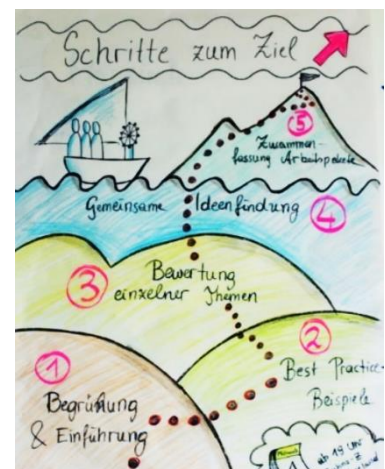 Schritte zum Ziel
5
Zusammen-
fassung Arbeitspakete
Gemeinsame Ideenfindung 4
3 Bewertung
einzelner Themen
2
Best Practice-
Beispiele
1
Begrüßung
& Einführung
ab 19 Uhr